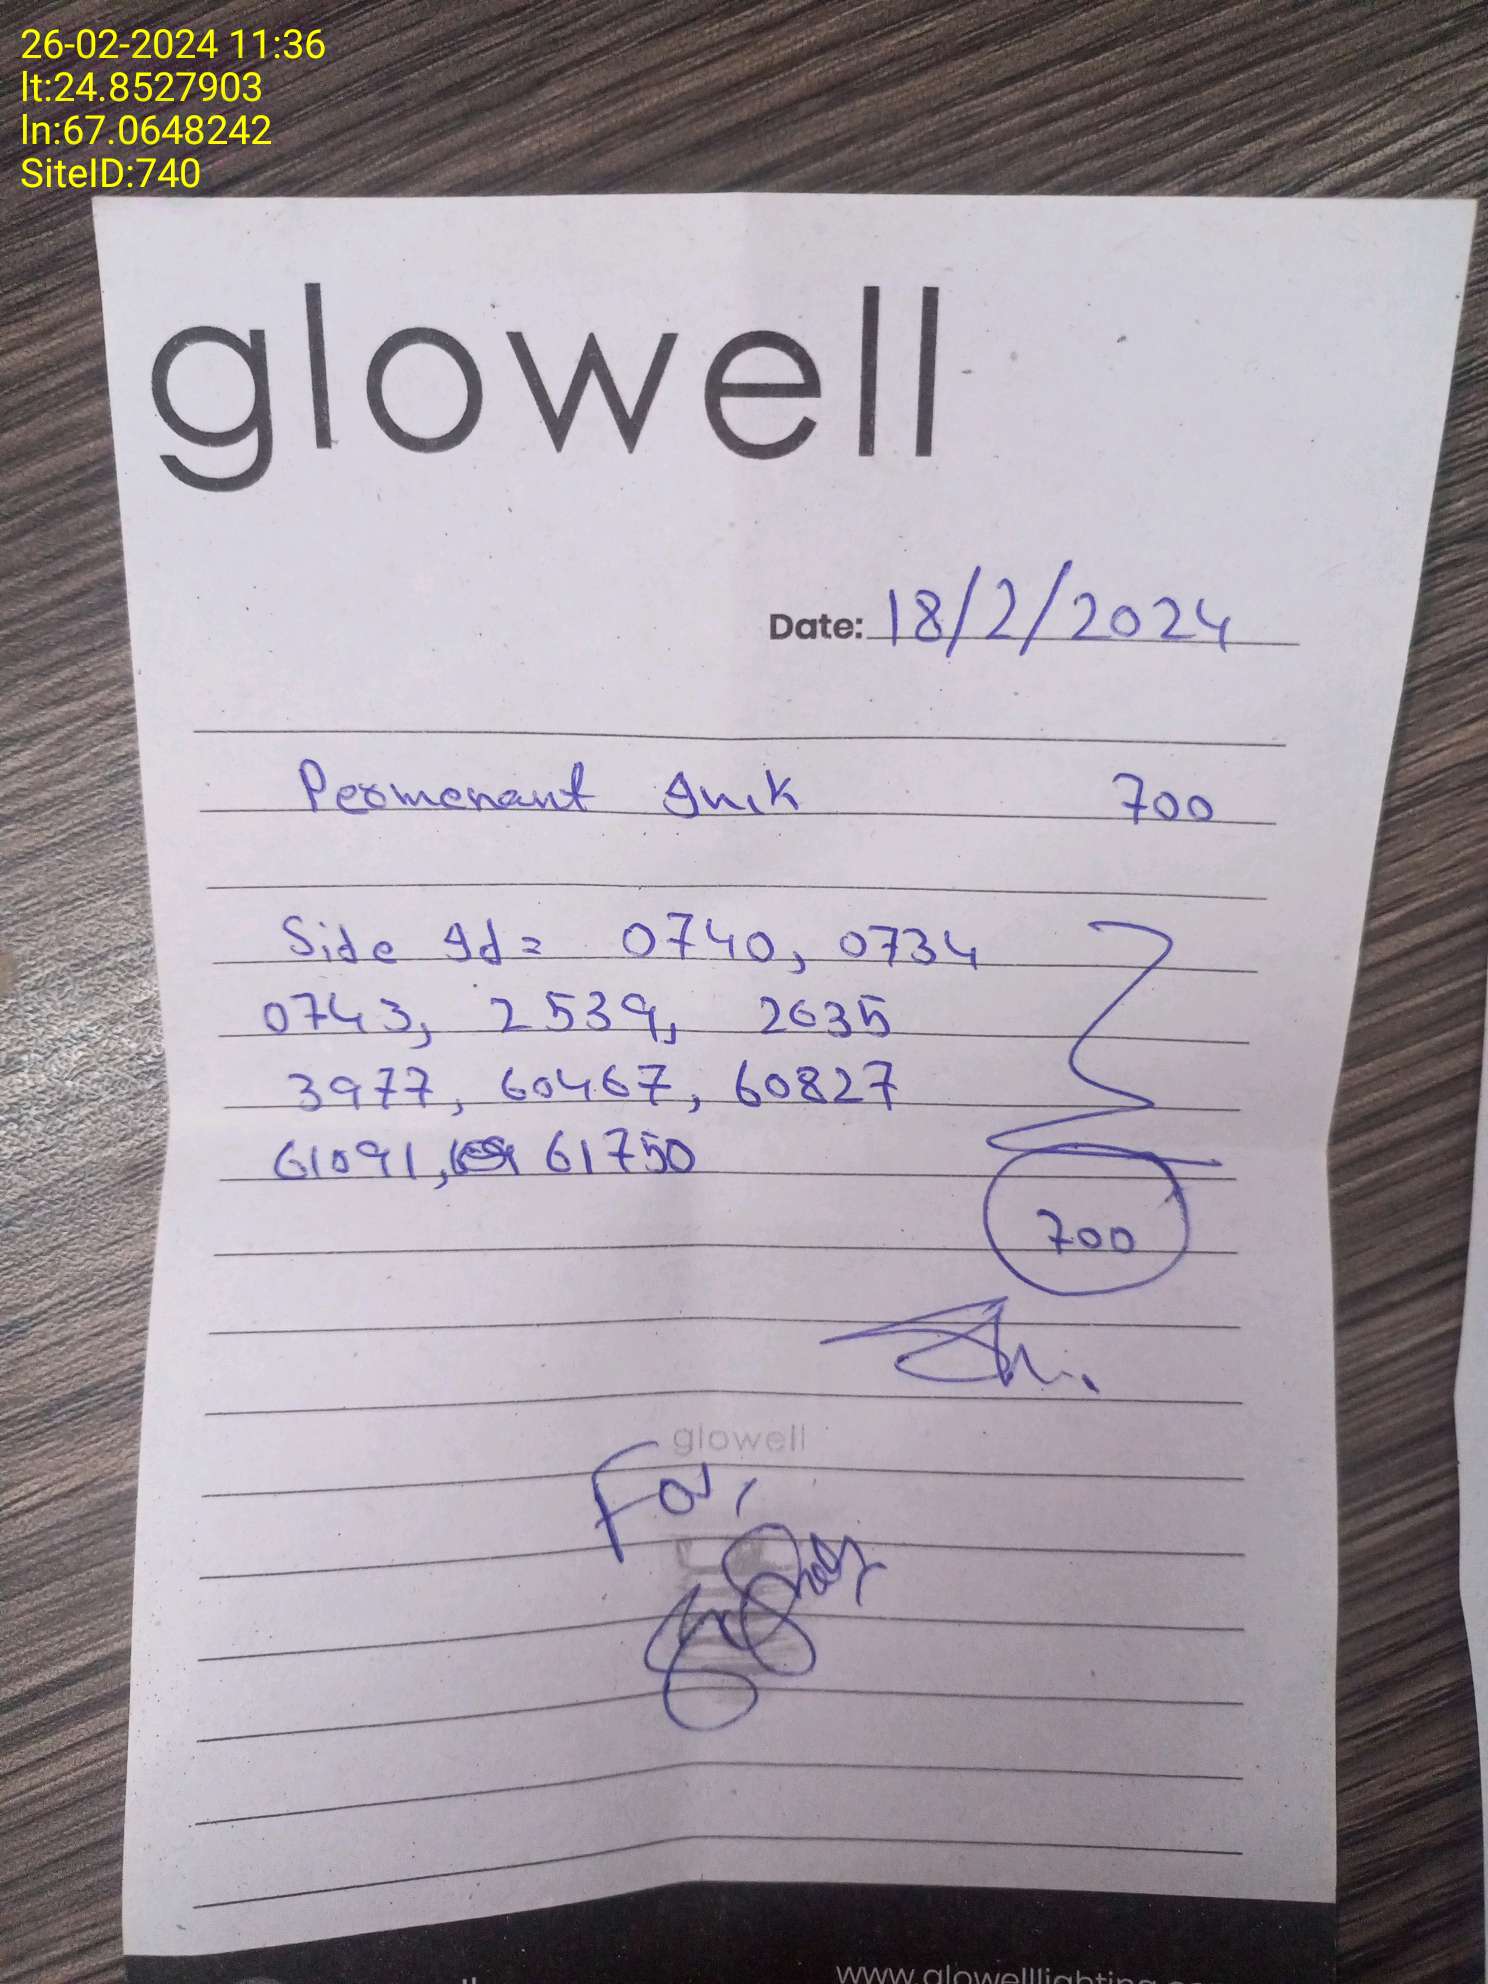 26-02-2024 11:36
lt:24.8527903
ln:67.0648242
SiteID:740
glowell
Date: 18/2/2024
Permenant Inik 700
Side Id = 0740, 0734
0743, 2539, 2635
3977, 60467, 60827
61091, 61750
700
glowell
For,
www.glowelllighting